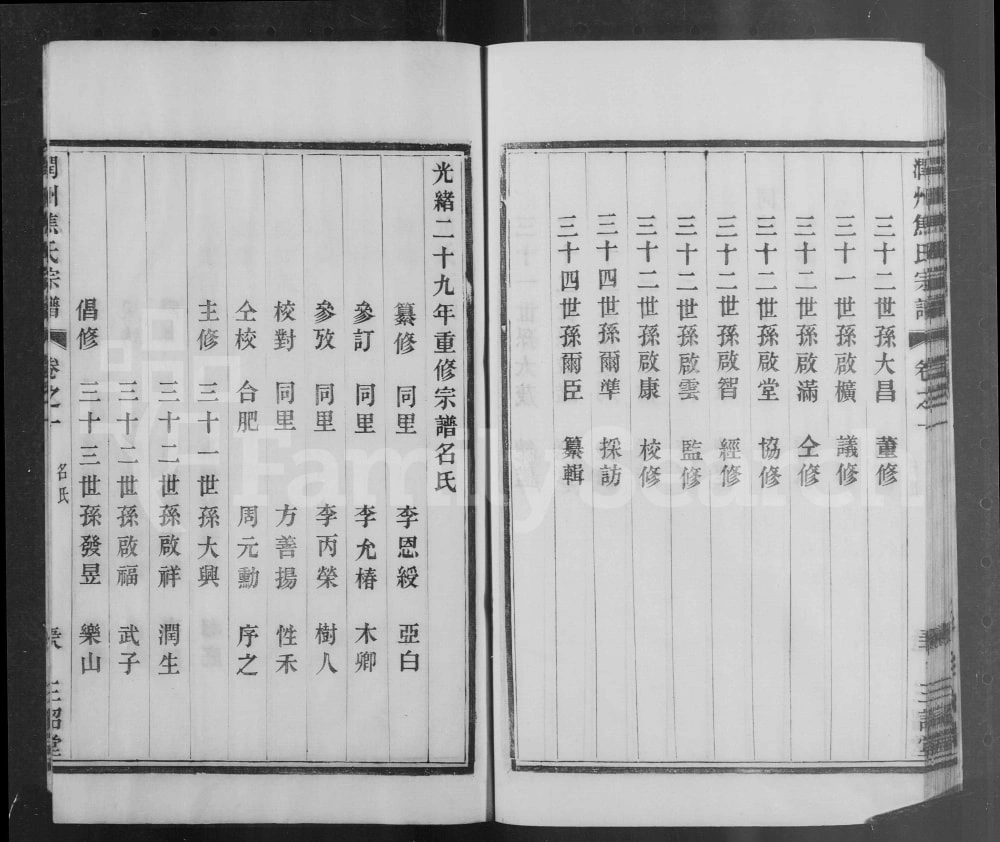 潤州焦氏宗譜 卷之一
三十二世孫大昌 董修
三十一世孫啟橫 議修
三十二世孫啟滿 仝修
三十二世孫啟堂 協修
三十二世孫啟智 經修
三十二世孫啟雲 監修
三十二世孫啟康 校修
三十四世孫爾準 採訪
三十四世孫爾臣 纂輯
光緒二十九年重修宗譜名氏
纂修 同里 李恩綬 亞白
參訂 同里 李允椿 木卿
參攷 同里 李丙榮 樹人
校對 同里 方善揚 性禾
仝校 合肥 周元勳 序之
主修 三十一世孫大興
三十二世孫啟祥 潤生
三十二世孫啟福 武子
倡修 三十三世孫發昱 樂山
潤州焦氏宗譜 卷之一 名氏 三詔堂
FamilySearch